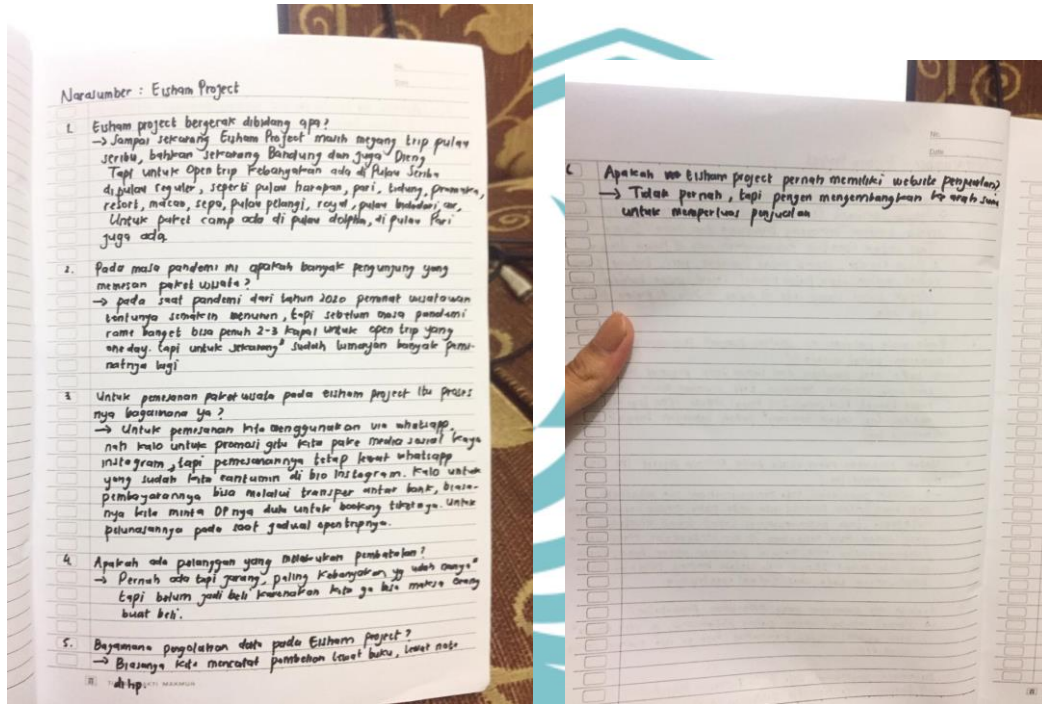 No.
Date
Narasumber : Eisham Project
1. Eisham project bergerak dibidang apa?
→ Sampai sekarang Eisham Project masih megang trip pulau
seribu, bahkan sekarang Bandung dan juga Dieng
Tapi untuk Open trip Kebanyakan ada di Pulau Seribu
dipulau reguler, seperti pulau harapan, pari, tidung, pramuka,
resort, macan, sepa, pulau pelangi, royal, pulau
Untuk paket camp ada di pulau dolphin, di pulau Pari
juga ada.
2. Pada masa pandemi ini apakah banyak pengunjung yang
memesan paket wisata?
→ pada saat pandemi dari tahun 2020 peminat wisatawan
tentunya semakin menurun, tapi sebelum masa pandemi
rame banget bisa penuh 2-3 kapal untuk open trip yang
one day. tapi untuk sekarang² sudah lumayan banyak pemi-
natnya lagi
3 Untuk pemesanan paket wisata pada eisham project itu proses
nya bagaimana ya?
→ Untuk pemesanan kita menggunakan via whatsapp,
nah kalo untuk promosi gitu kita pake media sosial kaya
instagram, tapi pemesanannya tetap lewat whatsapp
yang sudah kita cantumin di bio Instagram. Kalo untuk
pembayarannya bisa melalui transper antar bank, biasa-
nya kita minta DP nya dulu untuk booking tiketnya. Untuk
pelunasannya pada saat jadwal open tripnya.
4 Apakah ada pelanggan yang melakukan pembatalan?
→ Pernah ada tapi jarang, paling Kebanyakan yg udah nanya²
tapi belum jadi beli karenakan kita ga bisa maksa orang
buat beli.
5. Bagaimana pengolahan data pada Eisham project?
→ Biasanya kita mencatat pembelian lewat buku, lewat note
di hp.
MAKMUR
No.
Date
Apakah eisham project pernah memiliki website penjualan?
→ Tidak pernah, tapi pengen mengembangkan ke arah sana
untuk memperluas penjualan